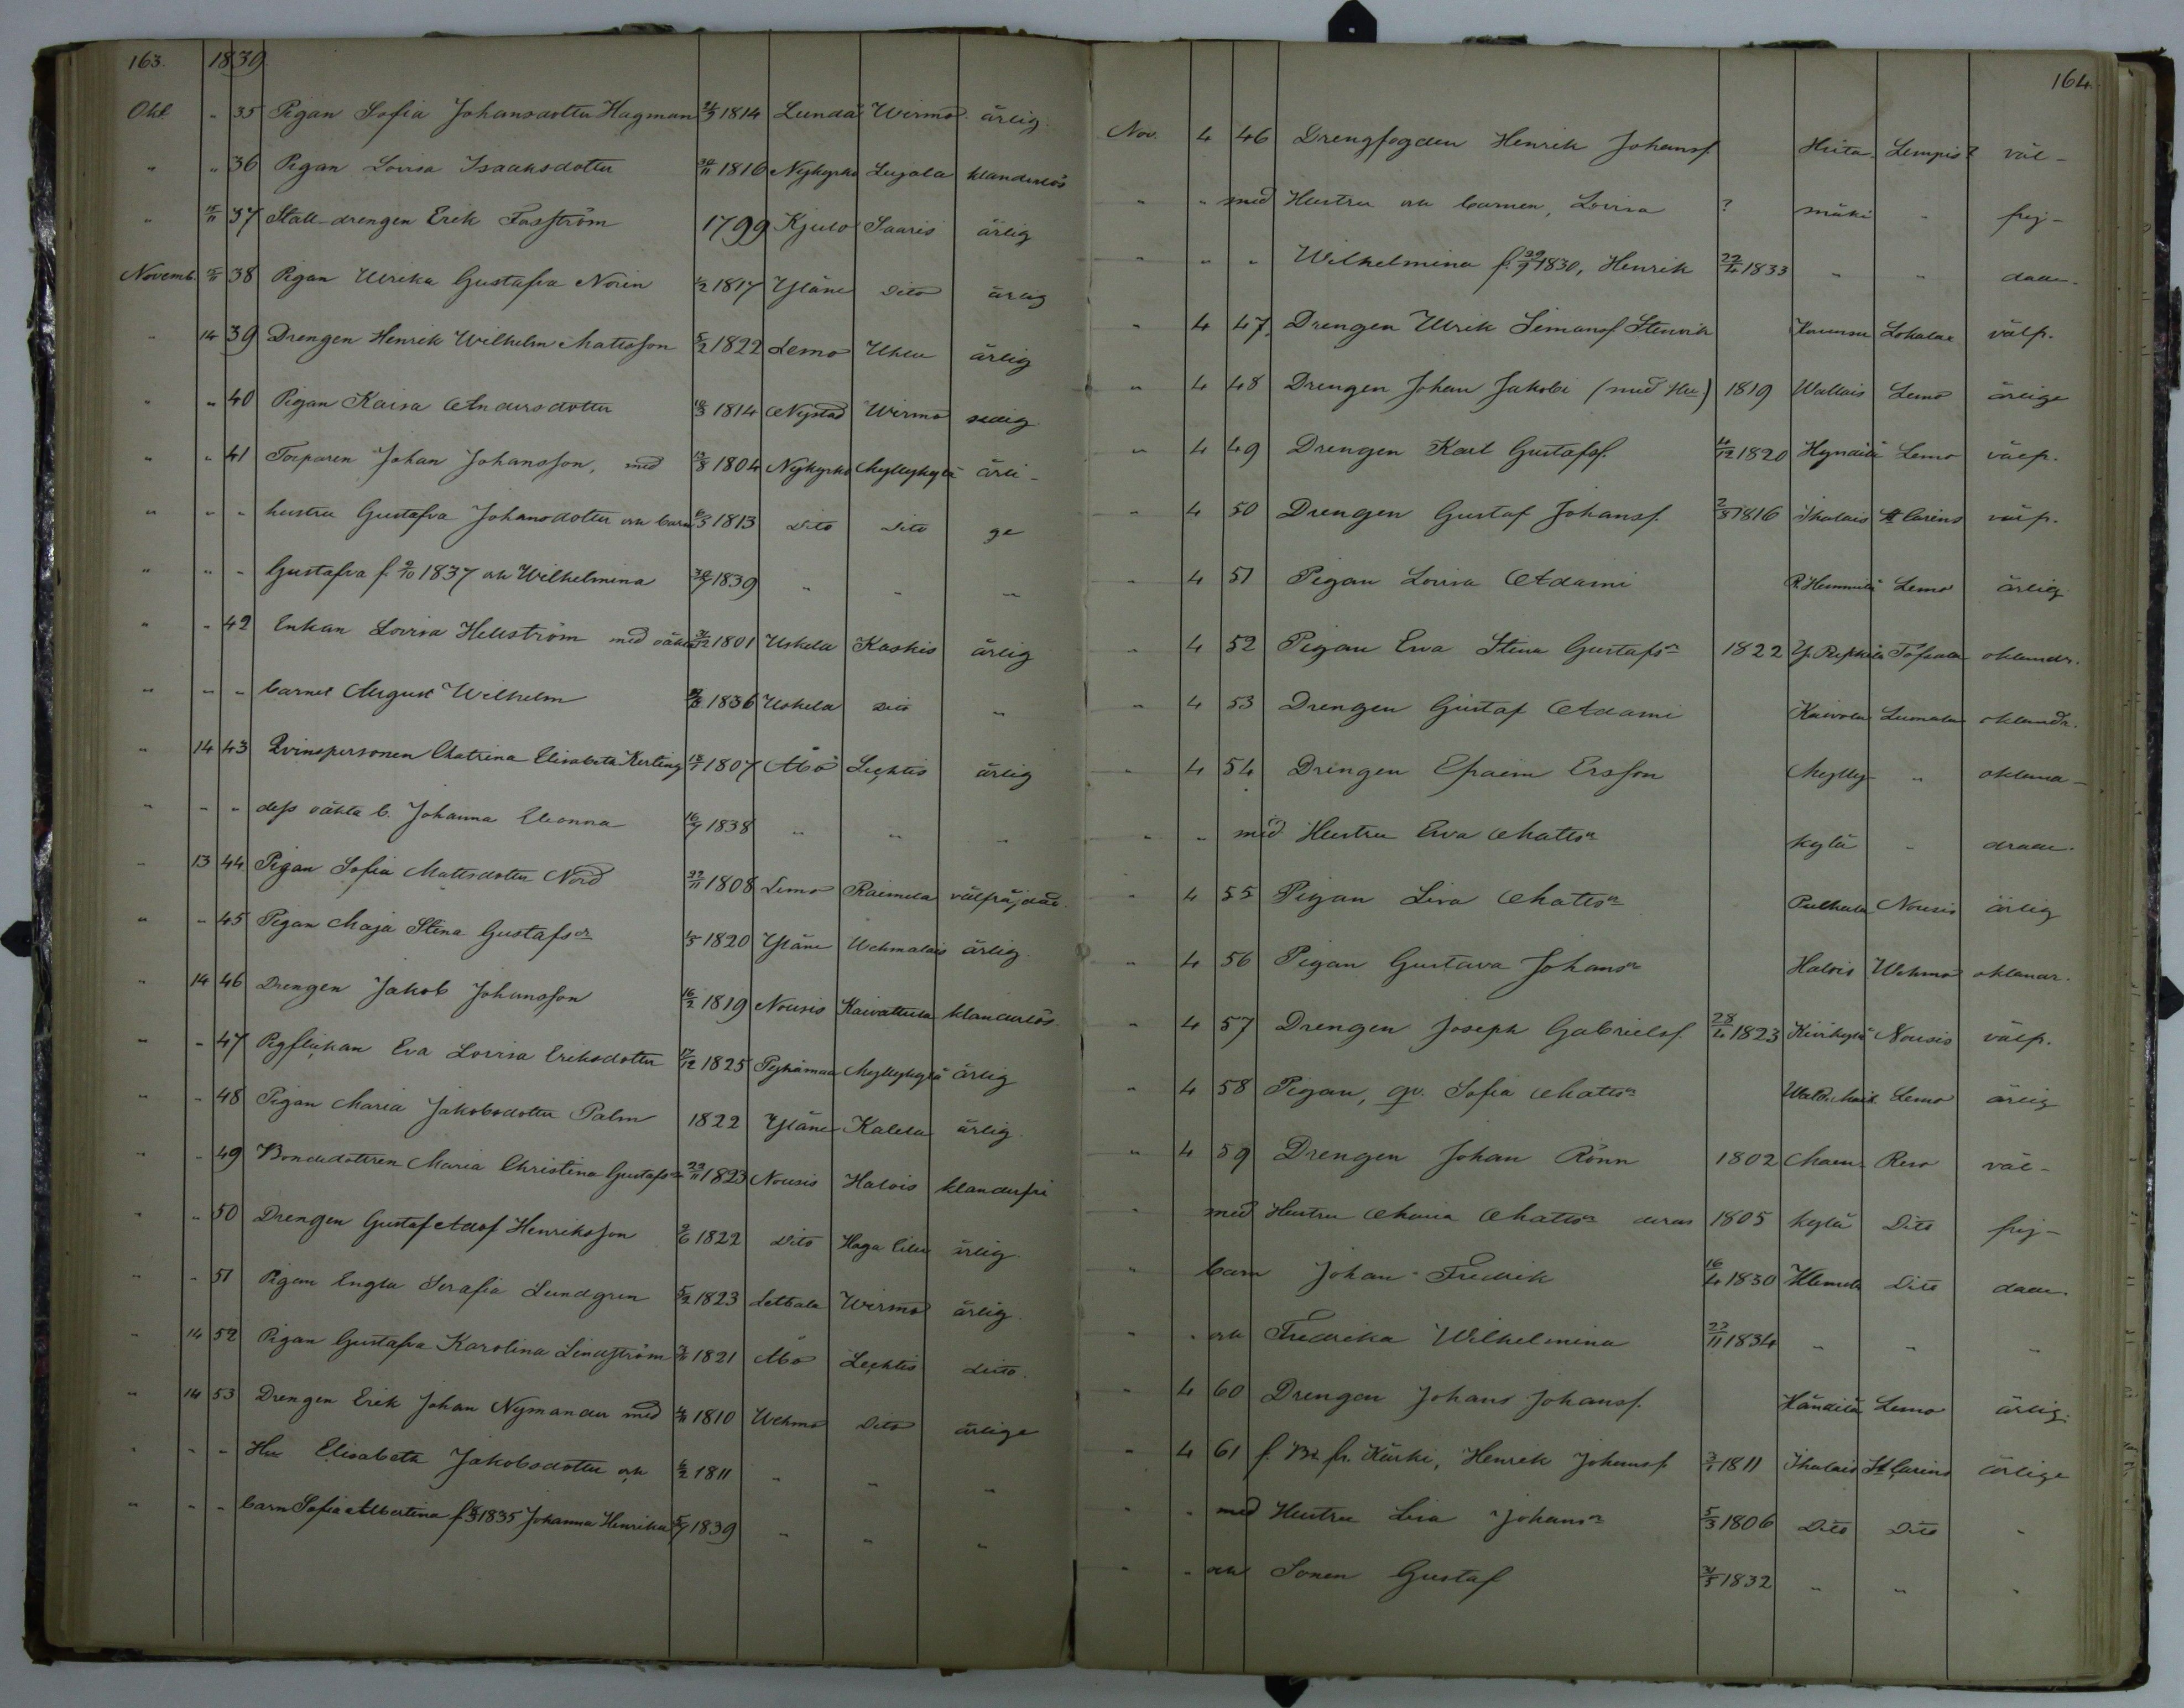 163. 1839.
Okt " 35 Pigan Sofia Johansdotter Hagman 1814 Lundä Wirmo ärlig.
" " 36 Pigan Lovisa Isaaksdotter 24/11 1816 Nykyrko Lugala klanderlös
" 15/11 37 Stall-drengen Erik Fasström 1799 Kjulo Saaris ärlig
Novemb. 38 Pigan Ulrika Gustafva Norin 1817 Yläne Dito ärlig
" 14 39 Drengen Henrik Wilhelm Matsson 5/2 1822 Lemo ärlig
" " 40 Pigan Kaisa Andersdotter 1814 Nystad Wirmo sedig
" " 41 Torparen Johan Johansson, med 1804 Nykyrko Myllykylä ärli-
" " " hustru Gustafva Johansdotter och barn 1813 Dito Dito ge
" " " Gustafva f. 2/10 1837 och Wilhelmina 1839 " " "
" " 42 Enkan Lovisa Hellström med oäkta 1801 Uskela Koskis ärlig
" " " barnet August Wilhelm 1836 Uskela Dito "
" 14 43 Qvinspersonen Chatrina Elisabeta Kerting 1807 Åbo Leçktis ärlig
" " " dess oäkta b. Johanna Eleonna 16/7 1838 " " "
" 13 44 Pigan Sofia Mattsdotter Nord 22/11 1808 Lemo Raimela välfräjdad.
" " 45 Pigan Maja Stina Gustafsdr 1820 Yläne Wehmalais ärlig.
" 14 46 Drengen Jakob Johansson 16/2 1819 Nousis Kaivattula klanderlös.
" " 47 Pigflickan Eva Lovisa Eriksdotter 17/12 1825 Pyhämaa Myllykylä ärlig
" " 48 Pigan Maria Jakobsdotter Palm 1822 Yläne Kalela ärlig.
" " 49 Bondedottren Maria Christina Gustafsdr 23/11 1823 Nousis Halois klanderfri
" " 50 Drengen Gustaf Adof Henriksson 2/6 1822 Dito Haga ärlig.
" " 51 Pigan Engla Serafia Lundgren 5/2 1823 Letsala Wirmo ärlig.
" 14 52 Pigan Gustafva Karolina Lindström 1821 Åbo Leçktis dito.
" 14 53 Drengen Erik Johan Nymander med 1810 Wehmo Dito ärlige
" " " Hu Elisabeth Jakobsdotter och 1811 " " "
" " " barn Sofia Albertina f. 1835 Johanna Henrika 1839 " " "
164.
Nov. 4 46 Drengfogden Henrik Johansf. Hiita- Lempis? väl-
" " med Hustru och barnen, Lovisa ? mäki " frej-
" " " Wilhelmina f. 29/9 1830, Henrik 22/4 1833 " " dade.
" 4 47. Drengen Ulrik Simonsf Stenvik Lokalax välfr.
" 4 48 Drengen Johan Jakobi (med Hu) 1819 Wallais Lemo ärlige
" 4 49 Drengen Karl Gustafsf. 1820 Hyndilä Lemo välfr.
" 4 50 Drengen Gustaf Johansf. 1816 Ihalais St Carins välfr.
" 4 51 Pigan Lovisa Adami Hemmilä Lemo ärlig
" 4 52 Pigan Eva Stina Gustafsdr 1822 Tofsala oklandr.
" 4 53 Drengen Gustaf Adami Kaivola Lumala oklandr.
" 4 54 Drengen Efraim Ersson Mylly- " okland-
" " med Hustru Eva Mattsdr kylä " drade.
" 4 55 Pigan Lisa Mattsdr Pulkala Nousis ärlig
" 4 56 Pigan Gustava Johansdr Halois Wehmo oklandr.
" 4 57 Drengen Joseph Gabrielsf. 28/4 1823 Kivikylä Nousis välfr.
" 4 58 Pigan, qv. Sofia Mattsdr Lemo ärlig
" 4 59 Drengen Johan Rönn 1802 Reso väl-
" med Hustru Maria Mattsdr deras 1805 kylä Dito frej-
" barn Johan Fredrik 16/4 1830 Dito dade.
" " och Fredrika Wilhelmina 23/11 1834 " " "
" 4 60 Drengen Johans Johansf. Händilä Lemo ärlig.
" 4 61 f. Bd. fr. Kurki, Henrik Johansf. 1811 Ihalais St Carins ärlige
" " med Hustru Lisa Johansdr 5/3 1806 Dito Dito "
" " och Sonen Gustaf 1832 " " "